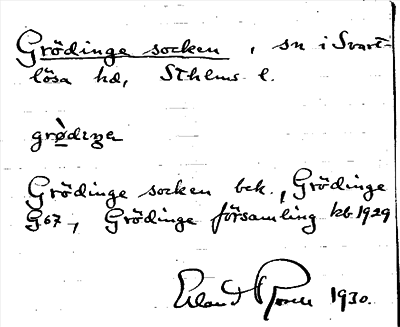 Grödinge socken, sn i Svart-
lösa hd, Sthlms l.
grø̀dıŋe
Grödinge socken bek., Grödinge
G67, Grödinge församling kb 1929
Erland Rosell 1930.